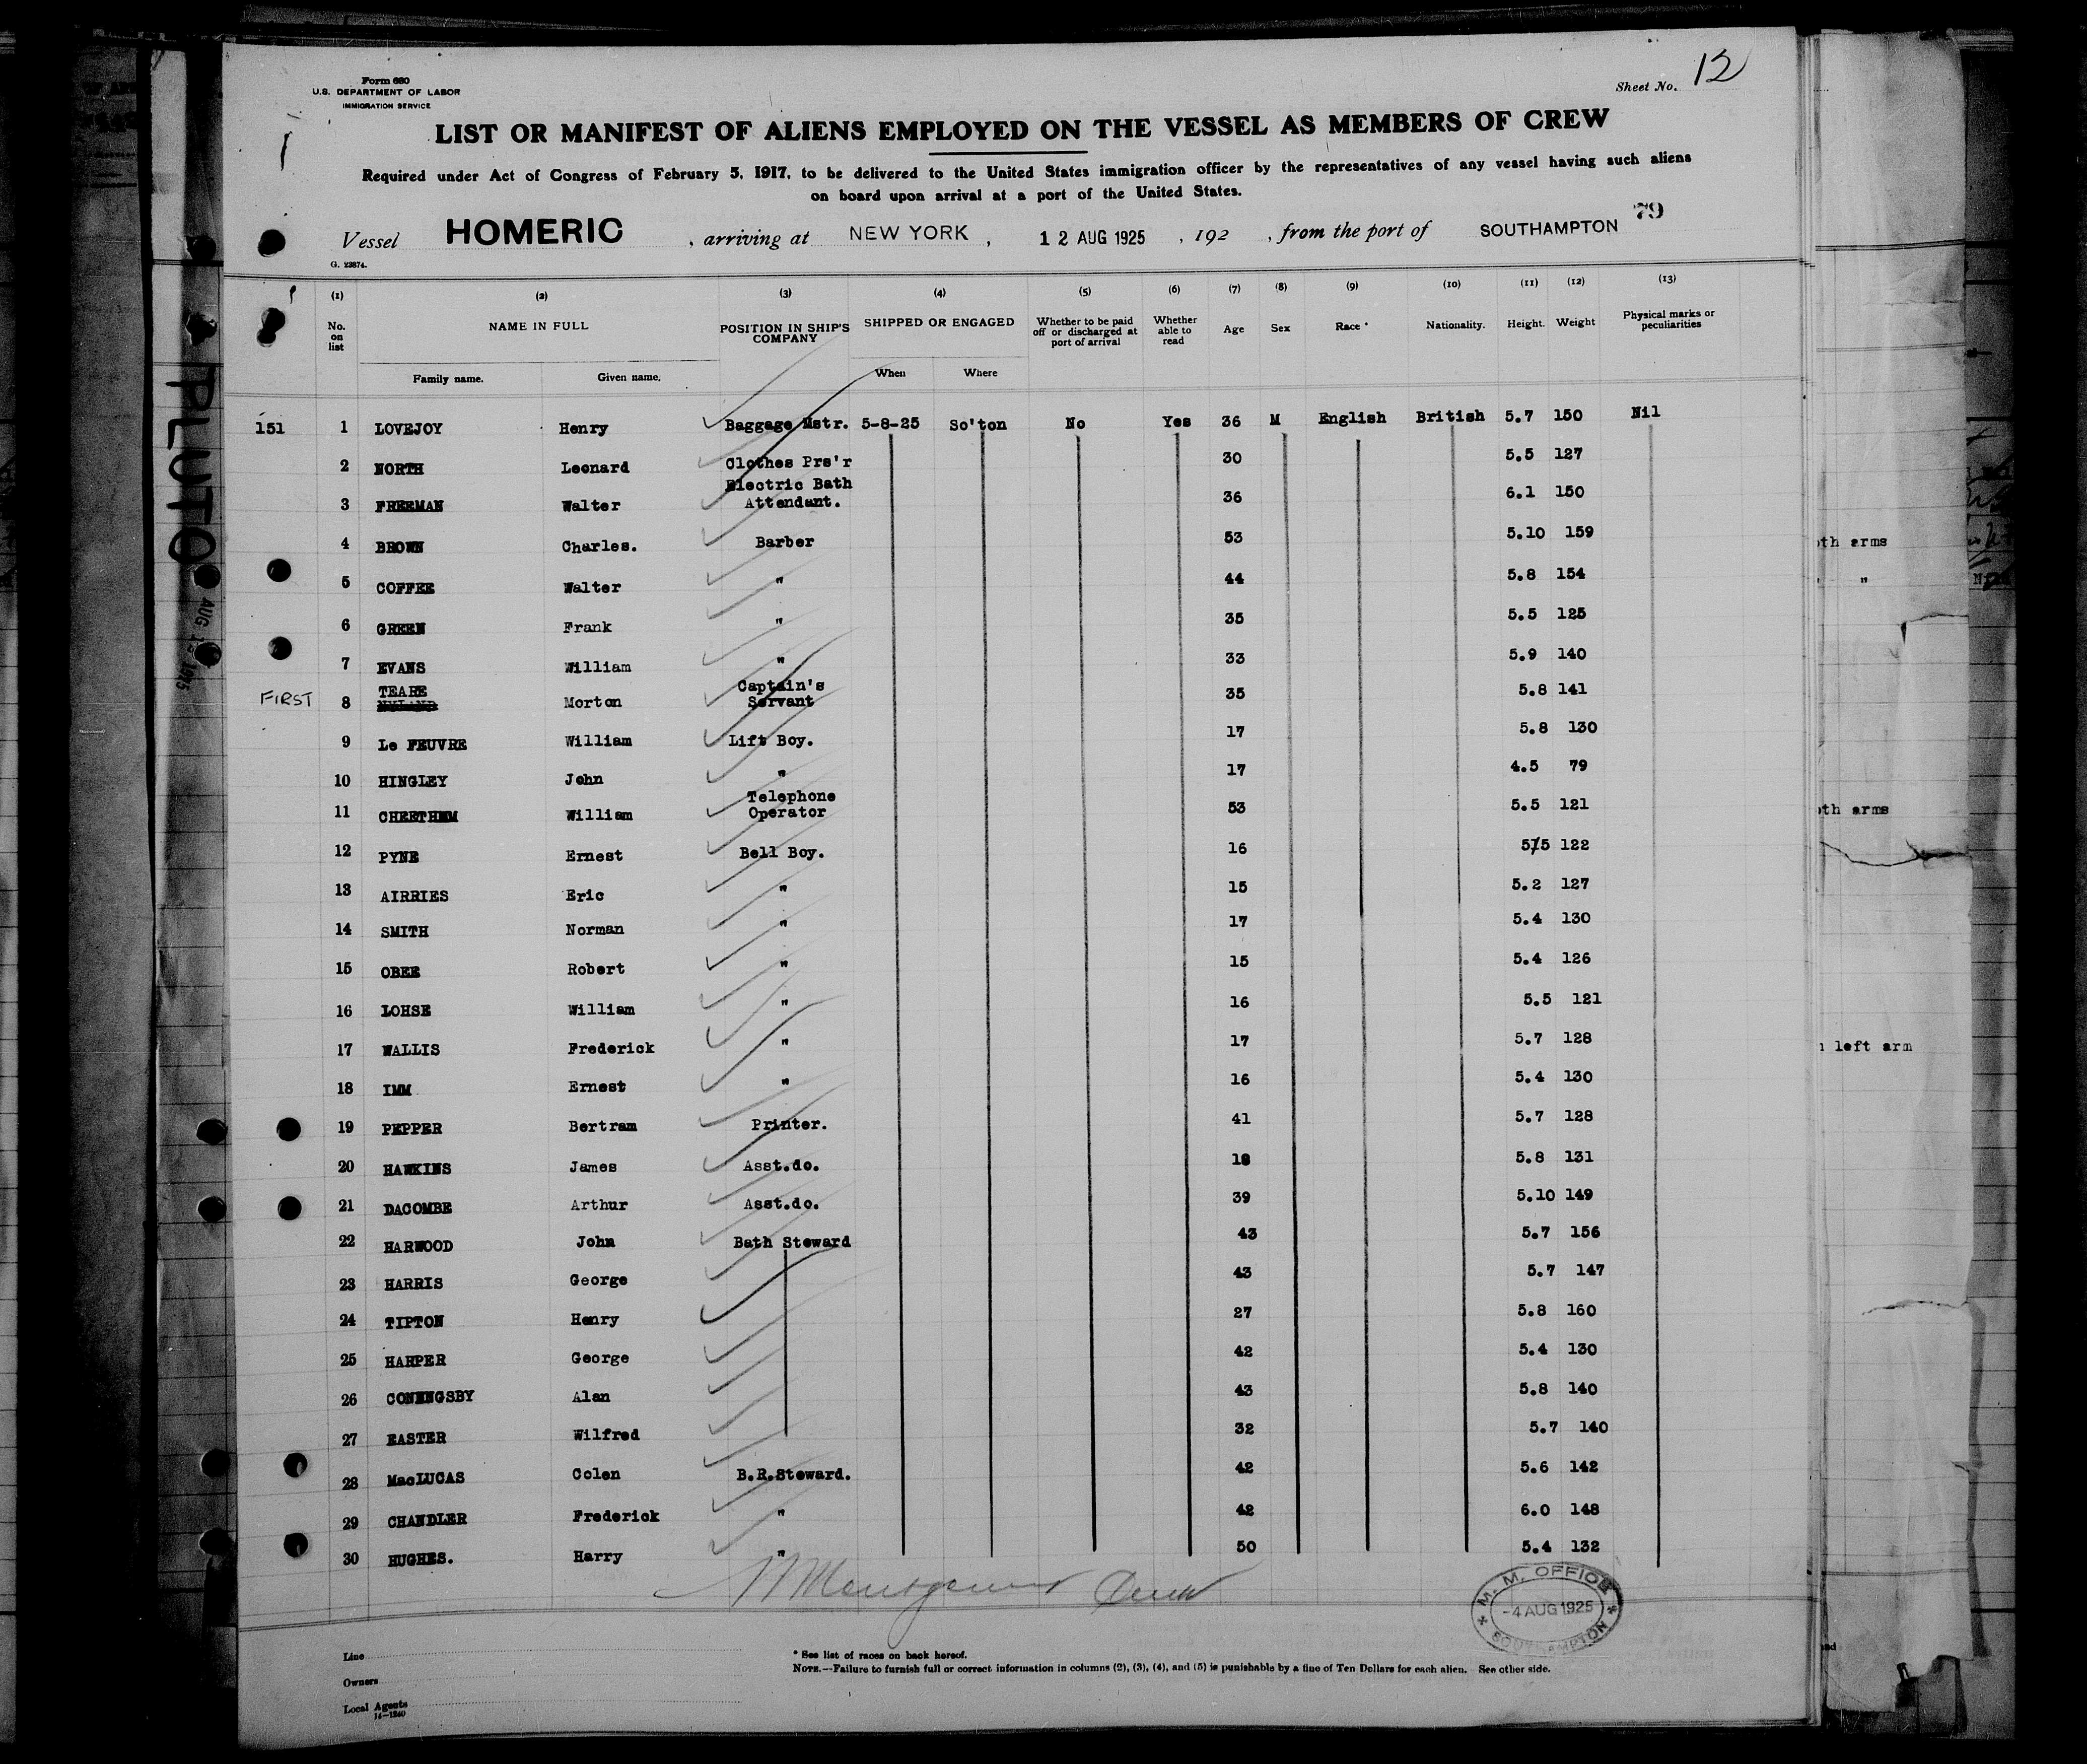 Form 680
U.S. DEPARTMENT OF LABOR
IMMIGRATION SERVICE
Sheet No. 12
LIST OR MANIFEST OF ALIENS EMPLOYED ON THE VESSEL AS MEMBERS OF CREW
Required under Act of Congress of February 5, 1917, to be delivered to the United States immigration officer by the representatives of any vessel having such aliens
on board upon arrival at a port of the United States.
79
Vessel HOMERIC , arriving at NEW YORK , 12 AUG 1925 , 192 , from the port of SOUTHAMPTON
G. 23874.
(1) (2) (3) (4) (5) (6) (7) (8) (9) (10) (11) (12) (13)
No. on list NAME IN FULL POSITION IN SHIP'S COMPANY SHIPPED OR ENGAGED Whether to be paid off or discharged at port of arrival Whether able to read Age Sex Race * Nationality. Height. Weight Physical marks or peculiarities
Family name. Given name. When Where
151 1 LOVEJOY Henry Baggage Mstr. 5-8-25 So'ton No Yes 36 M English British 5.7 150 Nil
2 NORTH Leonard Clothes Prs'r 30 5.5 127
3 FREEMAN Walter Electric Bath Attendant. 36 6.1 150
4 BROWN Charles. Barber 53 5.10 159
5 COFFEE Walter " 44 5.8 154
6 GREEN Frank " 35 5.5 125
7 EVANS William " 33 5.9 140
FIRST 8 TEARE Morton Captain's Servant 35 5.8 141
9 Le FEUVRE William Lift Boy. 17 5.8 130
10 HINGLEY John " 17 4.5 79
11 CHEETHAM William Telephone Operator 53 5.5 121
12 PYNE Ernest Bell Boy. 16 5/5 122
13 AIRRIES Eric " 15 5.2 127
14 SMITH Norman " 17 5.4 130
15 OBEE Robert " 15 5.4 126
16 LOHSE William " 16 5.5 121
17 WALLIS Frederick " 17 5.7 128
18 IMM Ernest " 16 5.4 130
19 PEPPER Bertram Printer. 41 5.7 128
20 HAWKINS James Asst.do. 18 5.8 131
21 DACOMBE Arthur Asst.do. 39 5.10 149
22 HARWOOD John Bath Steward 43 5.7 156
23 HARRIS George 43 5.7 147
24 TIPTON Henry 27 5.8 160
25 HARPER George 42 5.4 130
26 CONINGSBY Alan 43 5.8 140
27 EASTER Wilfred 32 5.7 140
28 MacLUCAS Colen B.R.Steward. 42 5.6 142
29 CHANDLER Frederick " 42 6.0 148
30 HUGHES. Harry " 50 5.4 132
M. M. OFFICE
-4 AUG 1925
SOUTHAMPTON
Line
Owners
Local Agents
14-1240
* See list of races on back hereof.
NOTE.—Failure to furnish full or correct information in columns (2), (3), (4), and (5) is punishable by a fine of Ten Dollars for each alien. See other side.
PLUTO
arms
"
arms
left arm